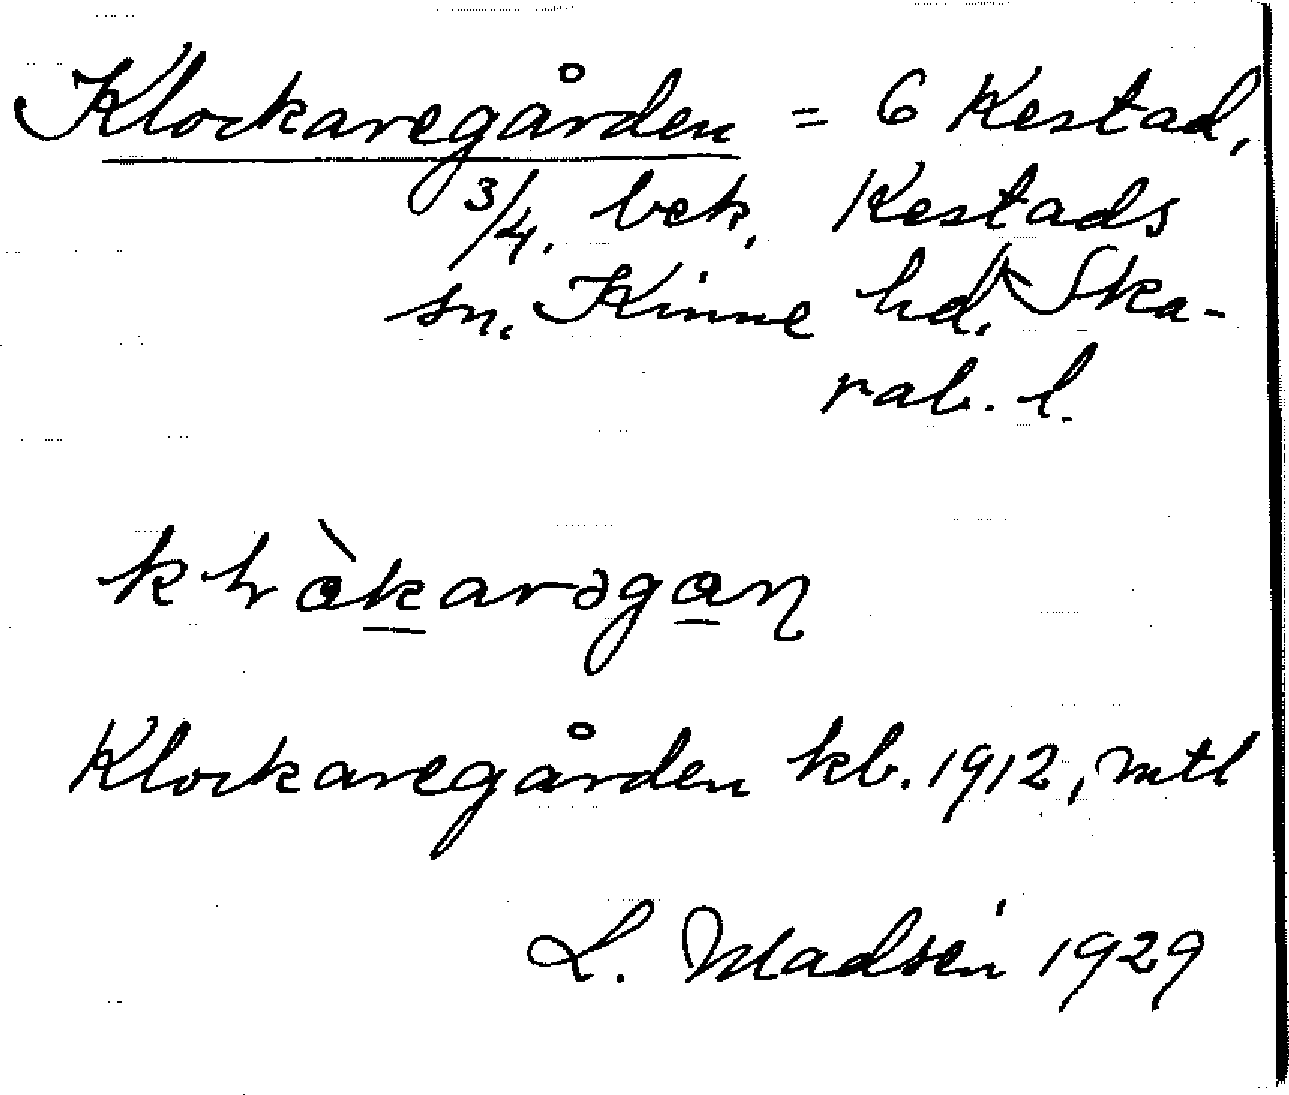 Klockaregården = 6 Kestad,
3/4, bek, Kestads
sn. Kinne hd, Ska-
rab. l.
Klockaregården kb. 1912, mtl
L. Madsén 1929